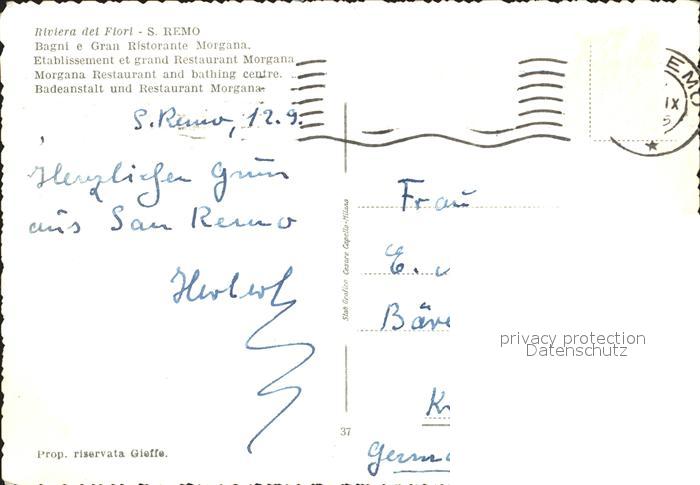 Riviera dei Fiori - S. REMO
Bagni e Gran Ristorante Morgana.
Etablissement et grand Restaurant Morgana
Morgana Restaurant and bathing centre.
Badeanstalt und Restaurant Morgana.
S. Remo, 12.9.
Herzlichen Gruss
aus San Remo
Herbert
Stab Grafico Cesare Capello-Milano
37
Prop. riservata Gieffe.
EMO
IX
Frau
E.
Bäre
K
Germa
privacy protection
Datenschutz